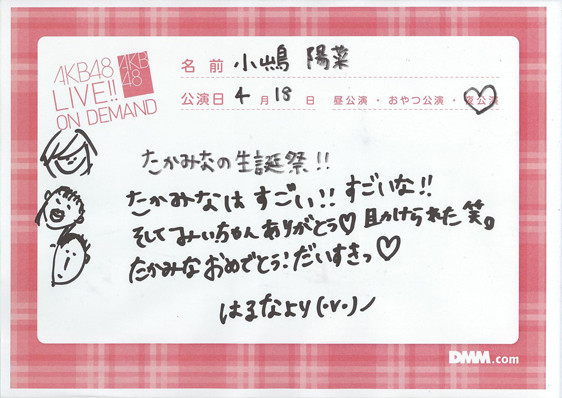 AKB48
LIVE!!
ON DEMAND
AKB
48
名前 小嶋 陽菜
公演日 4 月 18 日 昼公演・おやつ公演・夜公演
たかみなの生誕祭!!
たかみなはすごい!! すごいな!!
そしてみいちゃんありがとう♡ 助けられた笑。
たかみなおめでとう!だいすきっ♡
はるなより(・v・)ノ
DMM.com